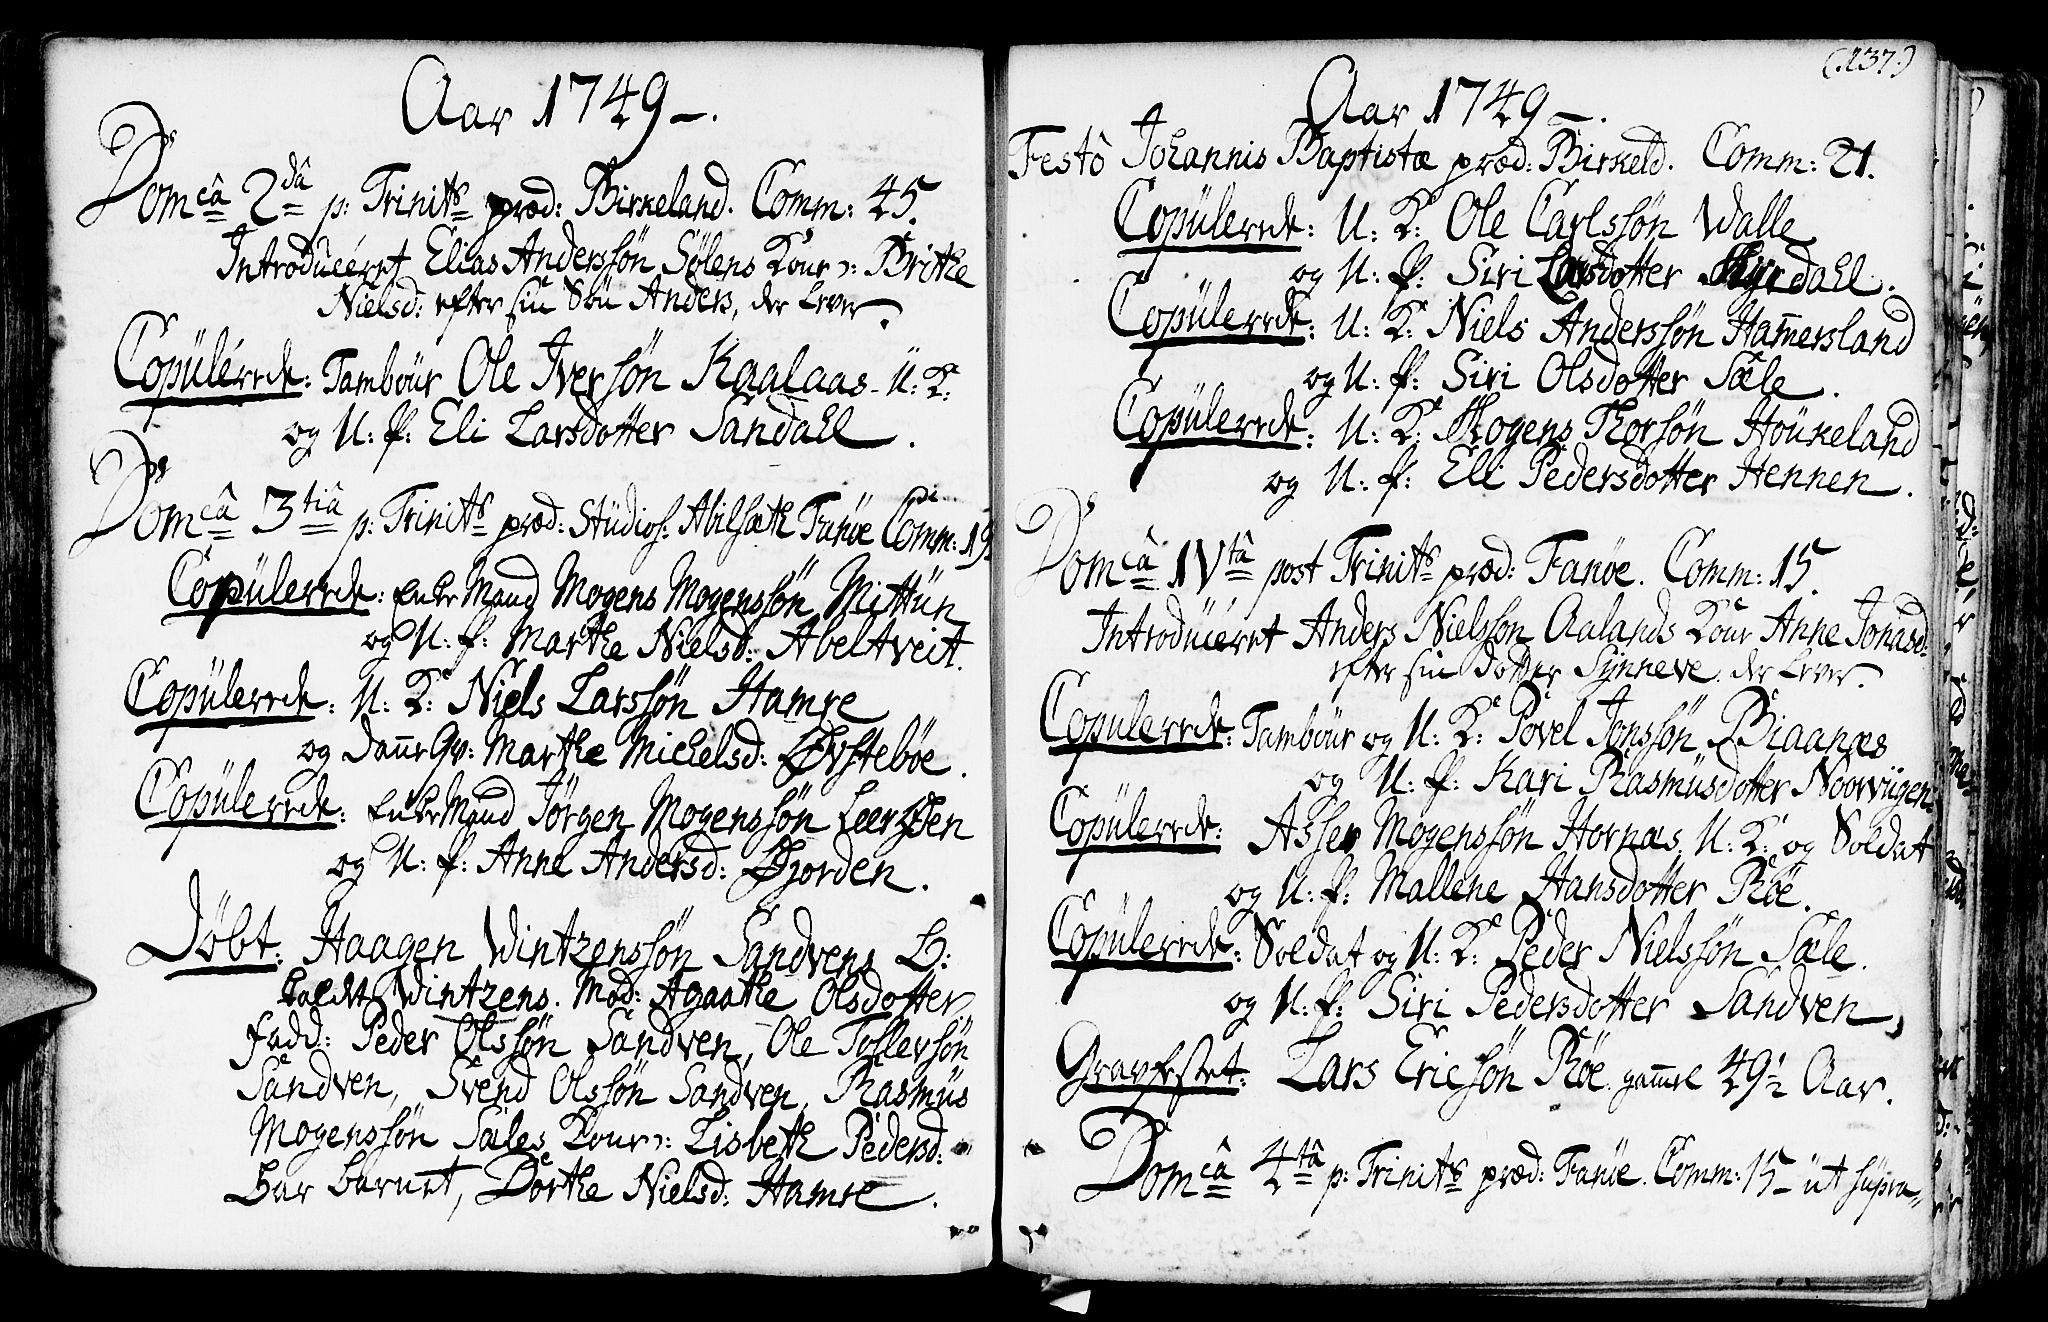 Aar 1749 –.
Domcâ 2dâ p: Trinits præd: Birkeland. Comm: 45.
Introdúceret Elias Anderssøn Sølens Kone ɔ: Brithe
Nielsd: efter sin Søn Anders, der lever.
Copúlerede: Tambour Ole Iversøn Kaalaas U: K:
og U: P: Eli Larsdotter Sandahl.
Domcâ 3tiâ p: Trinits præd: Stúdios: Abilsæth Fanöe Comm: 19.
Copúlerede: Enke Mand Mogens Mogenssøn Mittún
og U: P: Marthe Nielsd: Abeltveit.
Copúlerede: U: K: Niels Larssøn Hamre
og Danne Qv: Marthe Michelsd: Øvstebøe.
Copúlerede: Enke Mand Jørgen Mogenssøn Leerøen
og U: P: Anne Andersd: Øjorden.
Døbt: Haagen Wintzenssøn Sandvens B:
kaldt Wintzens. Mod: Agaathe Olsdotter,
fadd: Peder Olssøn Sandven, Ole Tollevsøn
Sandven, Svend Olssøn Sandven, Rasmús
Mogenssøn Sæles Kone ɔ: Lisbeth Pedersd:
bar barnet, Dorthe Nielsd: Hamre.
(:137:)
Aar 1749 –.
Festô Johannis Baptistæ præd: Birkeld. Comm: 21.
Copúlerede: U: K: Ole Carlssøn Walle
og U: P: Siri Larsdotter Myrdahl.
Copúlerede: U: K: Niels Anderssøn Ham̄ersland
og U: P: Siri Olsdotter Sæle.
Copúlerede: U: K: Mogens Thorsøn Houkeland
og U: P: Eli Pedersdotter Hennen.
Domcâ IVtâ post Trinits præd: Fanöe. Comm: 15.
Introdúceret Anders Nielsson Aalands Kone Anne Jonasd:
efter sin Dotter Synneve, der lever.
Copúlerede: Tambour og U: K: Povel Jonssøn Biaanæs
og U: P: Kari Rasmusdotter Noorviigen.
Copúlerede: Asser Mogenssøn Hornæs, U: K: og Soldat
og U: P: Mallene Hansdotter Röe.
Copúlerede: Soldat og U: K: Peder Nielssøn Sæle.
og U: P: Siri Pedersdotter Sandven,
Gravfestet: Lars Ericsøn Röe gam̄el 49½ Aar.
Domcâ 4tâ p: Trinits præd: Fanöe. Comm: 15 – út súpra,